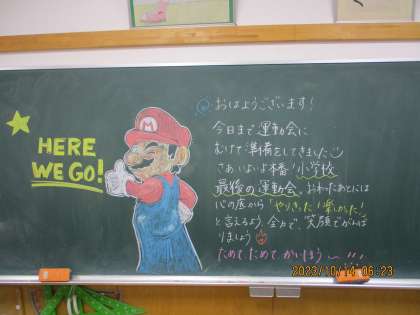 HERE
WE GO!
M
おはようございます!
今日まで運動会に
むけて準備をしてきました
さあいよいよ本番!小学校
最後の運動会。おわったあとには
心の底から「やりきった!楽しかった!」
と言えるよう、全力で、笑顔でがんば
りましょう
ためて ためて かいほう
2023/10/14 06:23